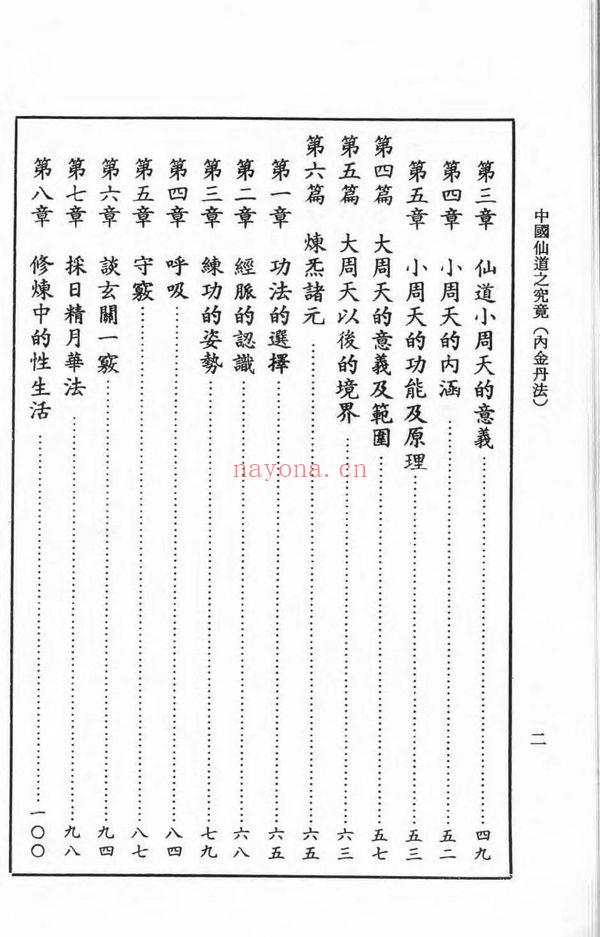 中國仙道之究竟（內金丹法）
二
第三章　仙道小周天的意義………四九
第四章　小周天的內涵………五二
第五章　小周天的功能及原理………五三
第四篇　大周天的意義及範圍………五七
第五篇　大周天以後的境界………六三
第六篇　煉炁諸元………六五
第一章　功法的選擇………六五
第二章　經脈的認識………六八
第三章　練功的姿勢………七九
第四章　呼吸………八四
第五章　守竅………八七
第六章　談玄關一竅………九四
第七章　採日精月華法………九八
第八章　修煉中的性生活………一〇〇
nayona.cn